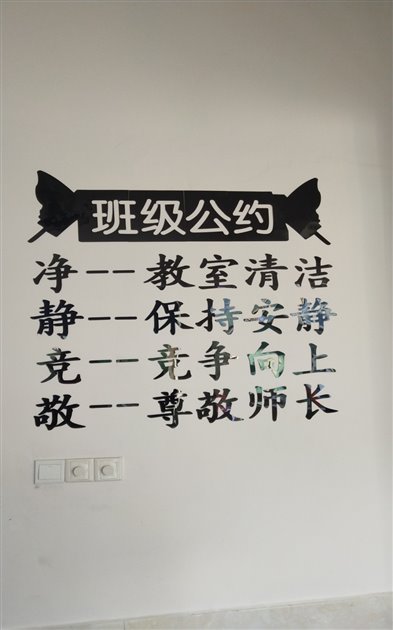 班级公约
净--教室清洁
静--保持安静
竞--竞争向上
敬--尊敬师长